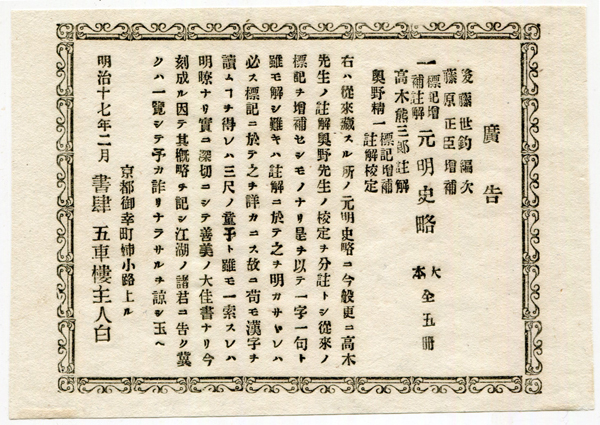 廣告
後藤世鈞編次
藤原正臣增補
一 標記增
補註解 元明史略 大本 全五冊
高木熊三郎註解
奧野精一 標記增補
註解校定
右ハ從來藏スル所ノ元明史略ニ今般更ニ高木
先生ノ註解奧野先生ノ校定ヲ分註トシ從來ノ
標記ヲ增補セシモノナリ是ヲ以テ一字一句ト
雖モ解シ難キハ註解ニ於テ之ヲ明カサヾレハ
必ス標記ニ於テ之ヲ詳カニス故ニ苟モ漢字ヲ
讀ムヿヲ得レハ三尺ノ童子ト雖モ一索スレハ
明瞭ナリ實ニ深切ニシテ善美ノ大佳書ナリ今
刻成ル因テ其概略ヲ記シ江湖ノ諸君ニ告ク冀
クハ一覽シテ予カ詐リナラサルヲ諒シ玉ヘ
京都御幸町姉小路上ル
明治十七年二月 書肆 五車樓主人白